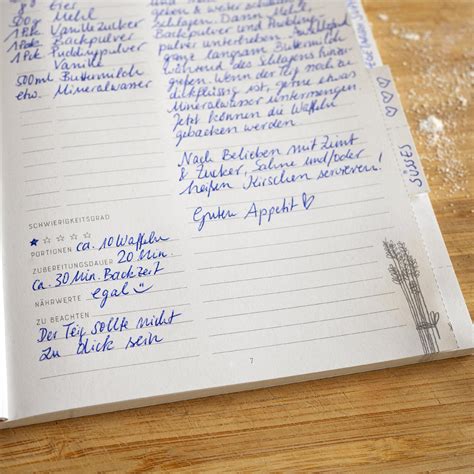 8g Eier
500g Mehl
1 Pck Vanillezucker
1 Pck Backpulver
1 Pck Puddingpulver
Vanille
500ml Buttermilch
etw. Mineralwasser
schlagen. Dann Mehl,
Backpulver und Pudding-
pulver unterheben. Anschließend
ganze langsam Buttermilch
während des Schlagens hinzu-
geben. Wenn der Teig noch zu
dickflüssig ist, gerne etwas
Mineralwasser untermengen.
Jetzt können die Waffeln
gebacken werden.
Nach Belieben mit Zimt
& Zucker, Sahne und/oder
heißen Kirschen servieren!
Guten Appetit
SCHWIERIGKEITSGRAD
PORTIONEN ca. 10 Waffeln
ZUBEREITUNGSDAUER 20 Min.
ca. 30 Min. Backzeit
NÄHRWERTE egal
ZU BEACHTEN
Der Teig sollte nicht
zu dick sein
7
SÜSSES